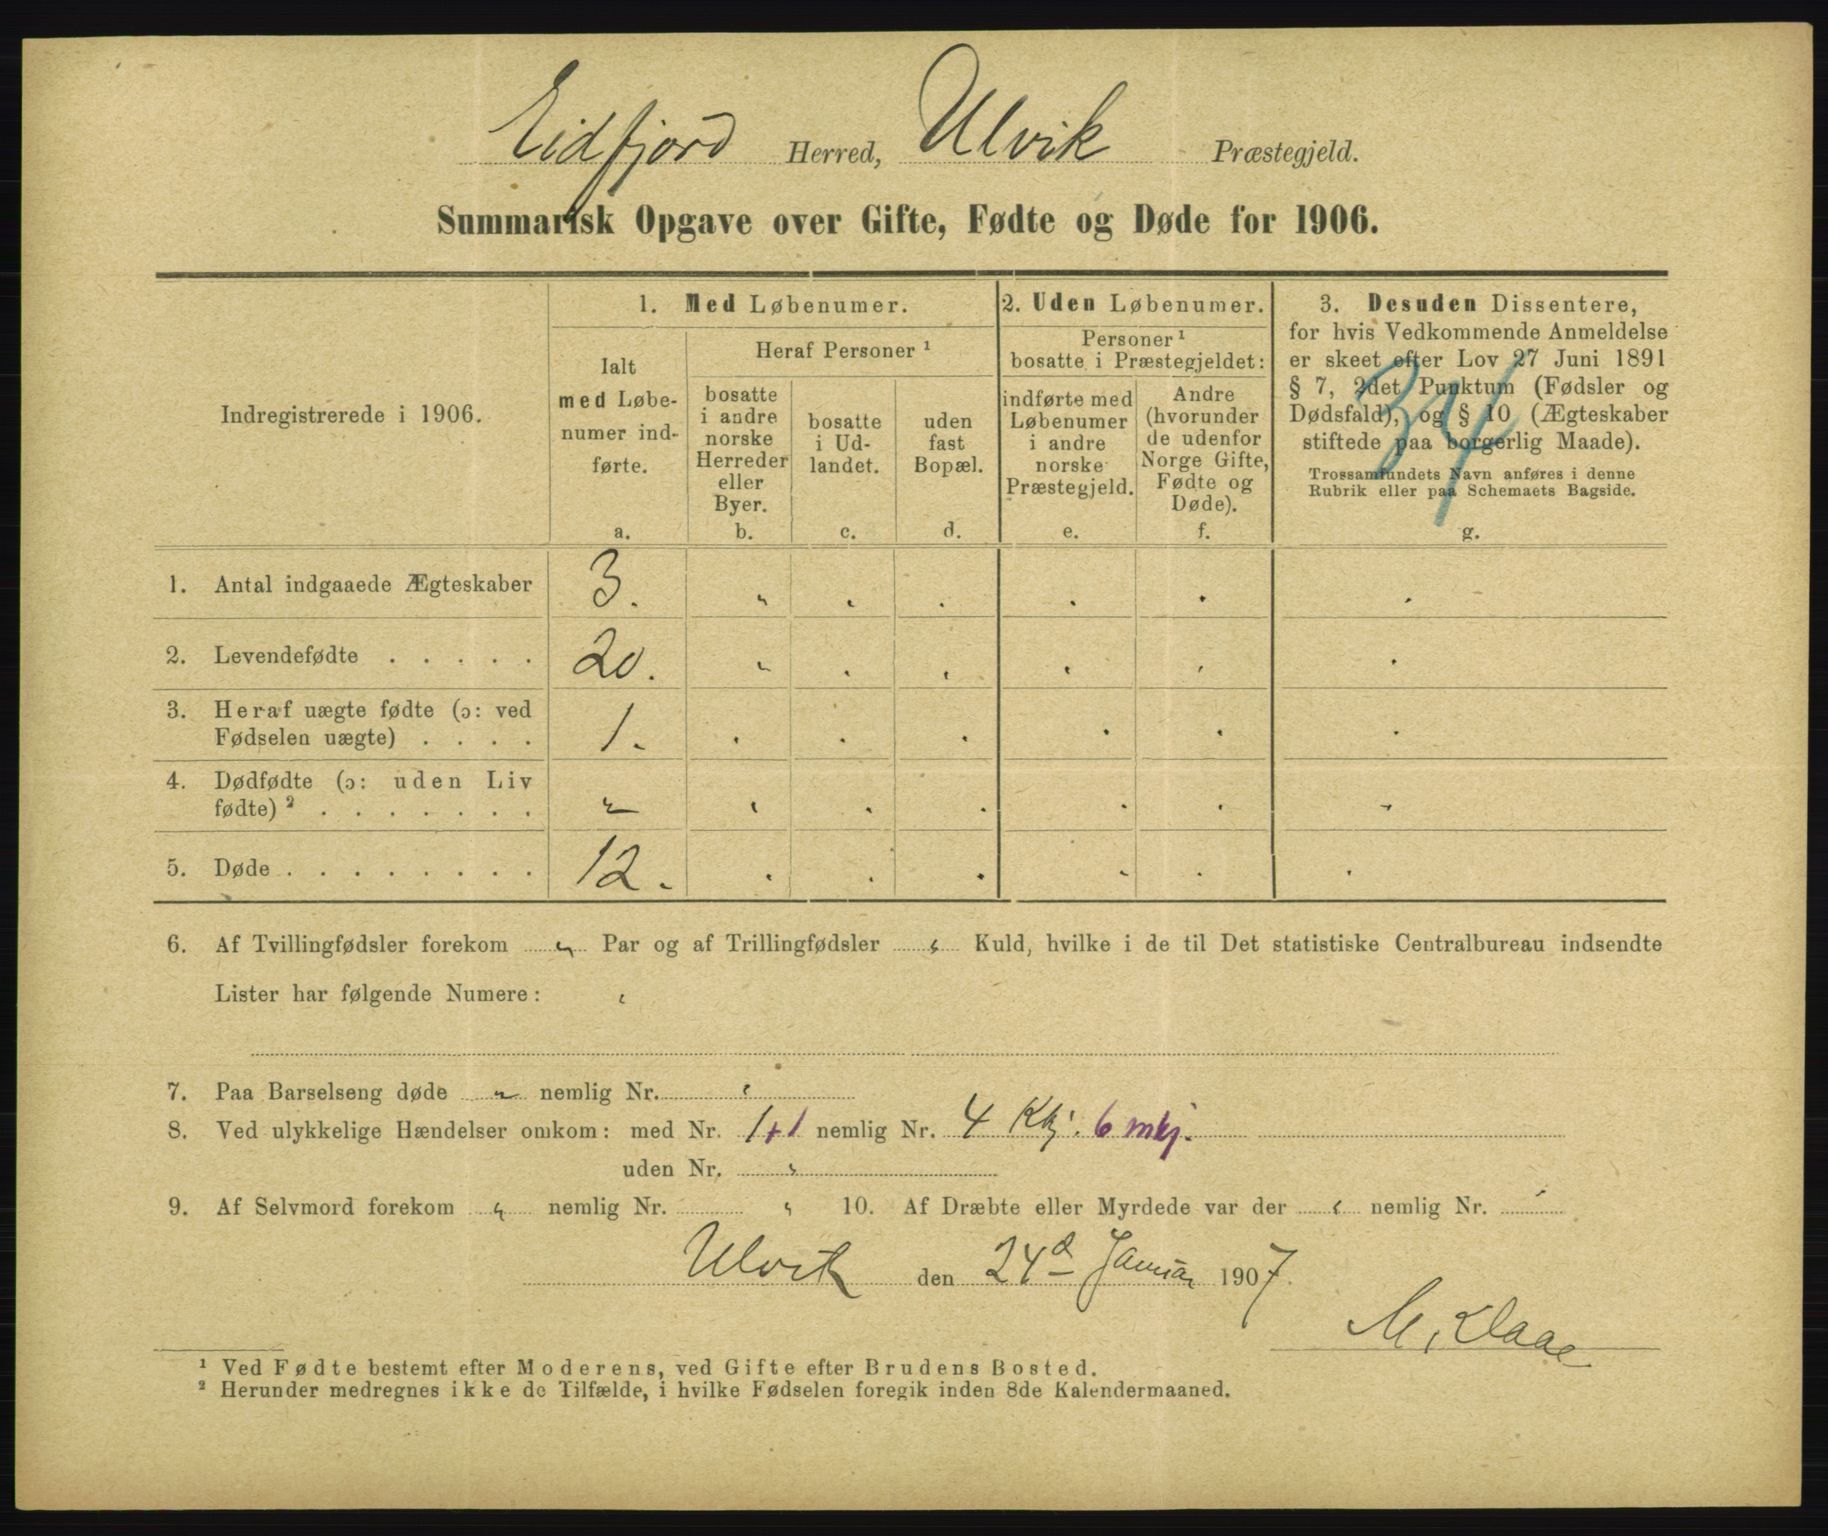 Eidfjord Herred, Ulvik Præstegjeld.
Summarisk Opgave over Gifte, Fødte og Døde for 1906.
Indregistrerede i 1906.
1. Med Løbenumer.
Ialt
med Løbe-
numer ind-
førte.
a.
Heraf Personer ¹
bosatte
i andre
norske
Herreder
eller
Byer.
b.
bosatte
i Ud-
landet.
c.
uden
fast
Bopæl.
d.
2. Uden Løbenumer.
Personer ¹
bosatte i Præstegjeldet:
indførte med
Løbenumer
i andre
norske
Præstegjeld.
e.
Andre
(hvorunder
de udenfor
Norge Gifte,
Fødte og
Døde).
f.
3. Desuden Dissentere,
for hvis Vedkommende Anmeldelse
er skeet efter Lov 27 Juni 1891
§ 7, 2det Punktum (Fødsler og
Dødsfald), og § 10 (Ægteskaber
stiftede paa borgerlig Maade).
Trossamfundets Navn anføres i denne
Rubrik eller paa Schemaets Bagside.
g.
34
1. Antal indgaaede Ægteskaber 3. „ . . . . .
2. Levendefødte . . . . . 20. „ . . . . .
3. Heraf uægte fødte (ɔ: ved
Fødselen uægte) . . . . 1. . . . . . .
4. Dødfødte (ɔ: uden Liv
fødte) ² . . . . . . . „ . . . . . .
5. Døde . . . . . . . . 12. . . . . . .
6. Af Tvillingfødsler forekom „ Par og af Trillingfødsler „ Kuld, hvilke i de til Det statistiske Centralbureau indsendte
Lister har følgende Numere: „
7. Paa Barselseng døde „ nemlig Nr. „
8. Ved ulykkelige Hændelser omkom: med Nr. 1+1 nemlig Nr. 4 Kkj. 6 mkj.
uden Nr. „
9. Af Selvmord forekom „ nemlig Nr. „ 10. Af Dræbte eller Myrdede var der „ nemlig Nr. „
Ulvik den 24d Januar 1907.
M. Klaae
¹ Ved Fødte bestemt efter Moderens, ved Gifte efter Brudens Bosted.
² Herunder medregnes ikke de Tilfælde, i hvilke Fødselen foregik inden 8de Kalendermaaned.